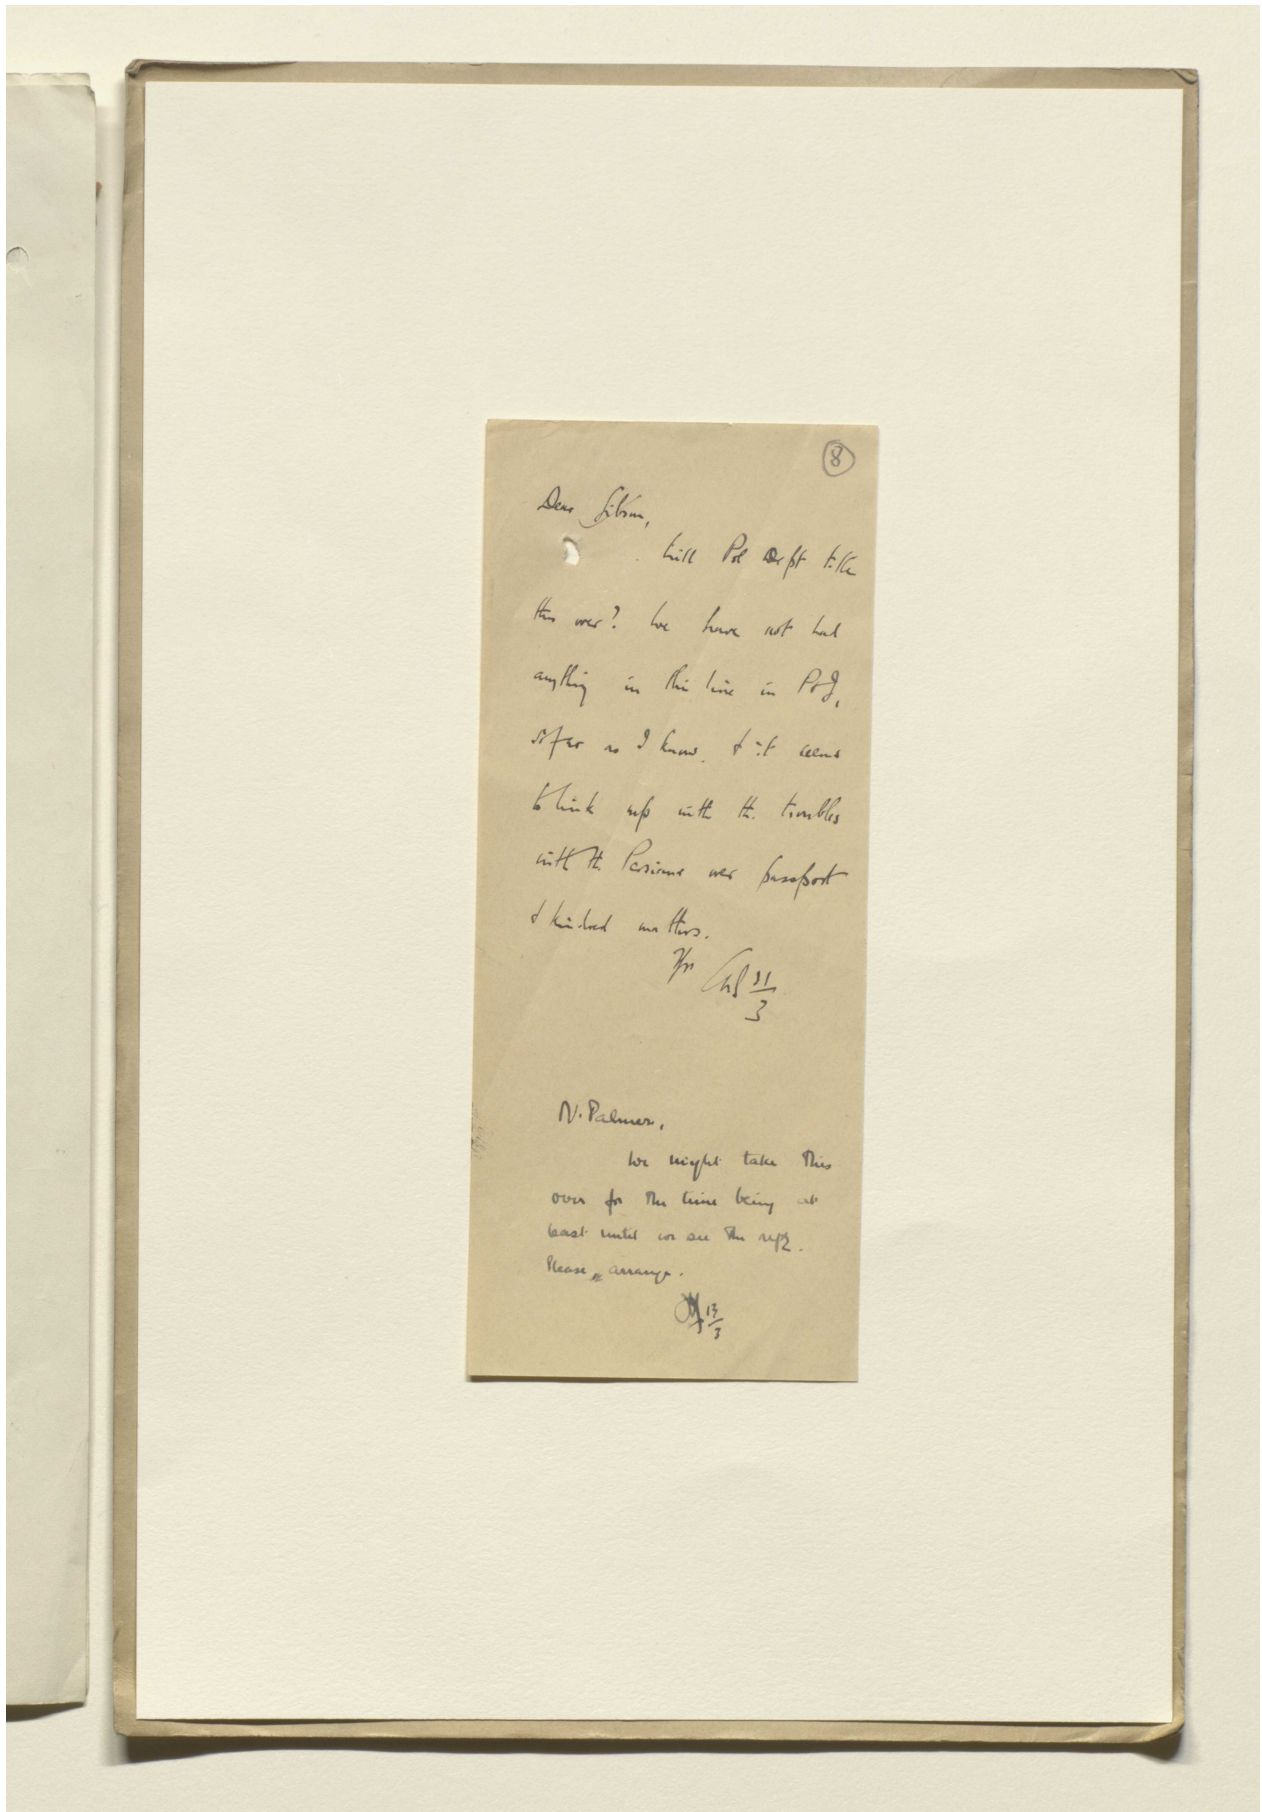 8
Dear Gibson,
Will Pol Dept take
this over? We have not had
anything in this line in P&J,
so far as I know, & it seems
to link up with the troubles
with the Persians over passport
& kindred matters.
Yrs
31/3
N. Palmer,
We might take this
over for the time being at
least until we see the reply.
Please arrange.
13/3